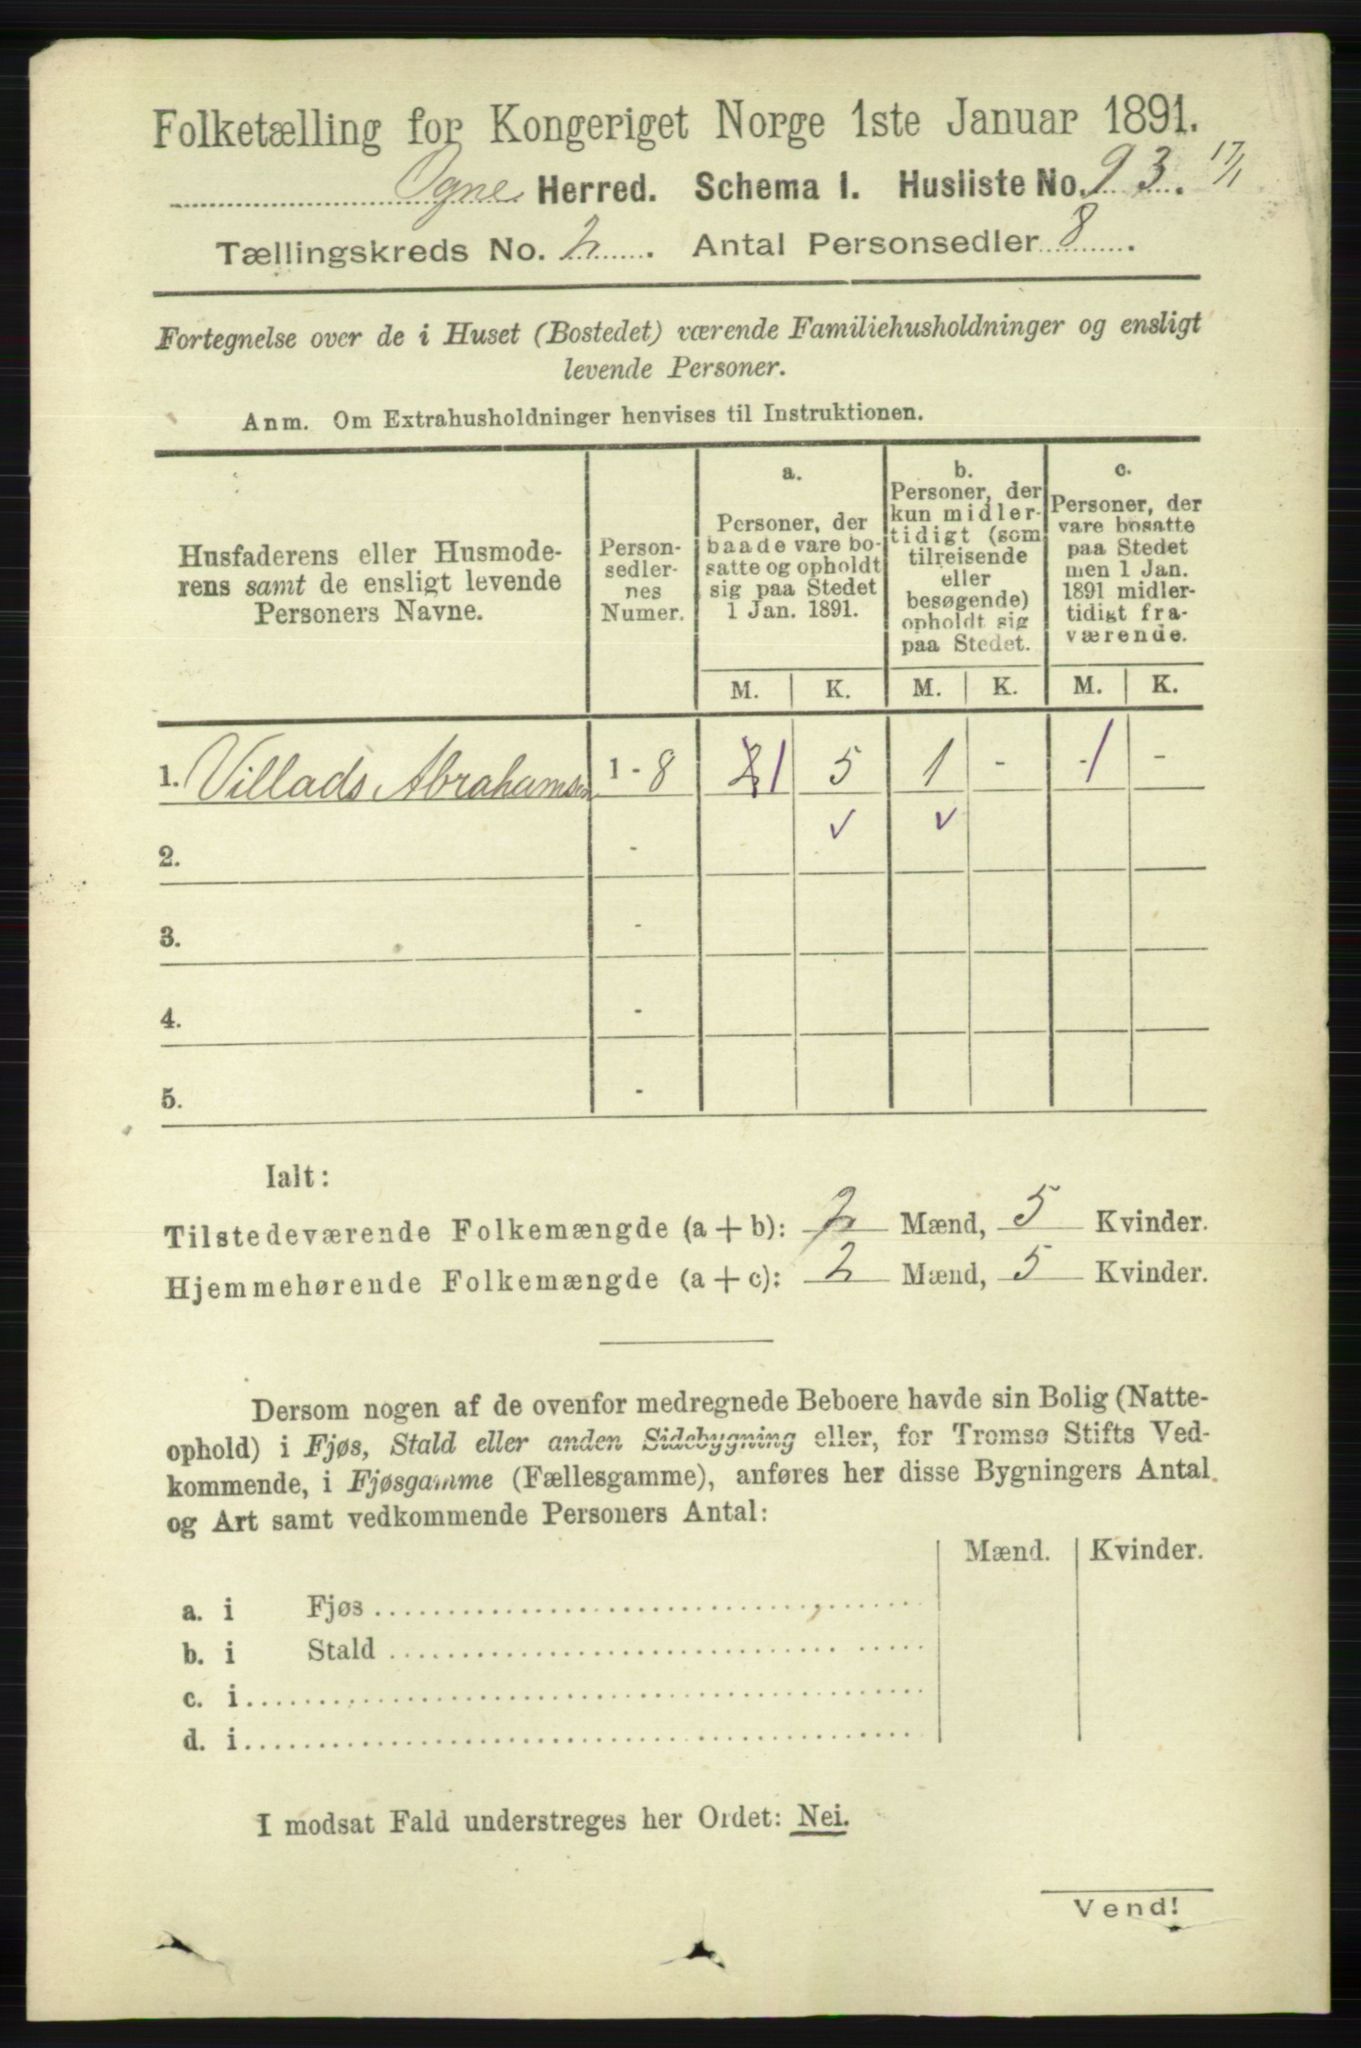 Folketælling for Kongeriget Norge 1ste Januar 1891.
Ogne Herred. Schema 1. Husliste No. 93. 17/1
Tællingskreds No. 2. Antal Personsedler 8.
Fortegnelse over de i Huset (Bostedet) værende Familiehusholdninger og ensligt
levende Personer.
Anm. Om Extrahusholdninger henvises til Instruktionen.
Husfaderens eller Husmode-
rens samt de ensligt levende
Personers Navne.
Person-
sedler-
nes
Numer.
a.
Personer, der
baade vare bo-
satte og opholdt
sig paa Stedet
1 Jan. 1891.
b.
Personer, der
kun midler-
tidigt (som
tilreisende
eller
besøgende)
opholdt sig
paa Stedet.
c.
Personer, der
vare bosatte
paa Stedet
men 1 Jan.
1891 midler-
tidigt fra-
værende.
M. K. M. K. M. K.
1. Villads Abrahamsen 1 - 8 2 1 5 1 - 1 -
2. - ✓ ✓
3. -
4. -
5. -
Ialt:
Tilstedeværende Folkemængde (a + b): 2 Mænd, 5 Kvinder.
Hjemmehørende Folkemængde (a + c): 2 Mænd, 5 Kvinder.
Dersom nogen af de ovenfor medregnede Beboere havde sin Bolig (Natte-
ophold) i Fjøs, Stald eller anden Sidebygning eller, for Tromsø Stifts Ved-
kommende, i Fjøsgamme (Fællesgamme), anføres her disse Bygningers Antal
og Art samt vedkommende Personers Antal:
Mænd. Kvinder.
a. i Fjøs
b. i Stald
c. i
d. i
I modsat Fald understreges her Ordet: Nei.
Vend!